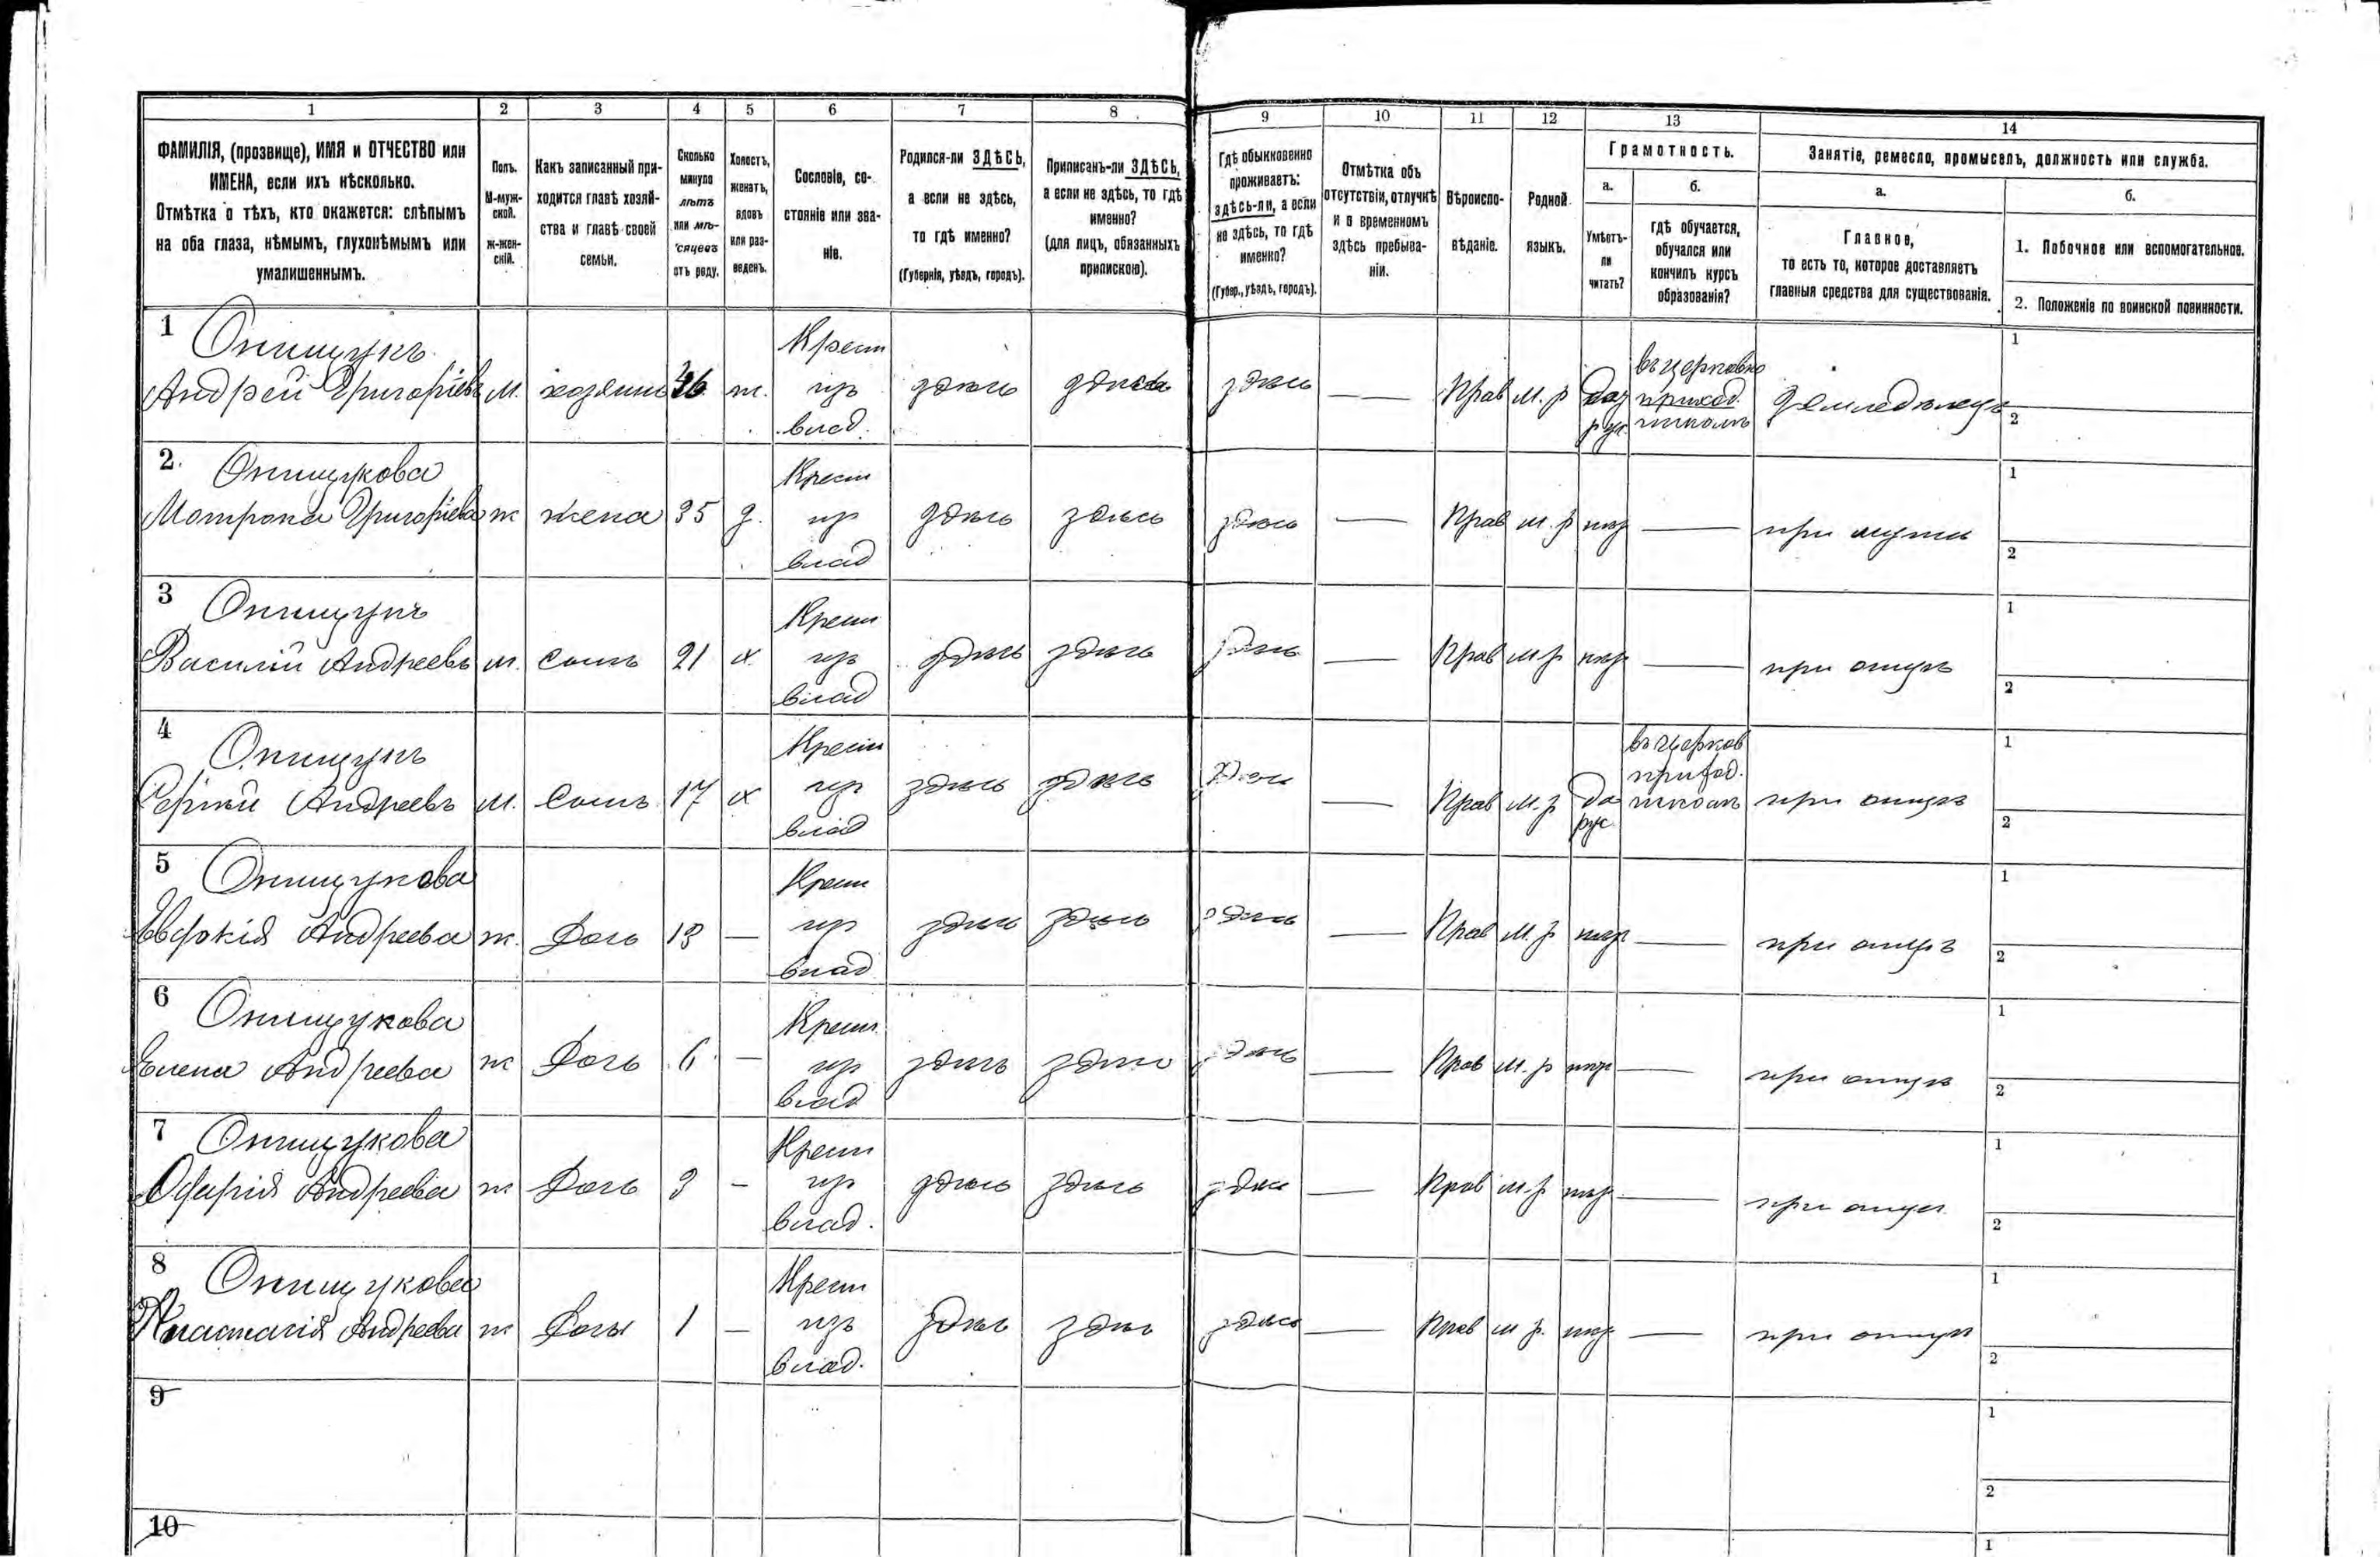 1 2 3 4 5 6 7 8 9 10 11 12 13 14
ФАМИЛІЯ, (прозвище), ИМЯ и ОТЧЕСТВО или
ИМЕНА, если ихъ нѣсколько.
Отмѣтка о тѣхъ, кто окажется: слѣпымъ
на оба глаза, нѣмымъ, глухонѣмымъ или
умалишеннымъ.
Полъ.
М-муж-
ской.
ж-жен-
скій.
Какъ записанный при-
ходится главѣ хозяй-
ства и главѣ своей
семьи.
Сколько
минуло
лѣтъ
или мѣ-
сяцевъ
отъ роду.
Холостъ,
женатъ,
вдовъ
или раз-
веденъ.
Сословіе, со-
стояніе или зва-
ніе.
Родился-ли ЗДѢСЬ,
а если не здѣсь,
то гдѣ именно?
(Губернія, уѣздъ, городъ).
Приписанъ-ли ЗДѢСЬ,
а если не здѣсь, то гдѣ
именно?
(для лицъ, обязанныхъ
припискою).
Гдѣ обыкновенно
проживаетъ:
здѣсь-ли, а если
не здѣсь, то гдѣ
именно?
(Губер., уѣздъ, городъ).
Отмѣтка объ
отсутствіи, отлучкѣ
и о временномъ
здѣсь пребыва-
ніи.
Вѣроиспо-
вѣданіе.
Родной
языкъ.
Грамотность.
а.
Умѣетъ-
ли
читать?
б.
гдѣ обучается,
обучался или
кончилъ курсъ
образованія?
Занятіе, ремесло, промыселъ, должность или служба.
а.
Главное,
то есть то, которое доставляетъ
главныя средства для существованія.
б.
1. Побочное или вспомогательное.
2. Положеніе по воинской повинности.
1 Онищукъ Крест въ церковно 1
Андрей Григорьевъ м. хозяинъ 46 ж. изъ здѣсь здѣсь здѣсь — Прав м. р да приход. земледѣлецъ
влад. рус школѣ 2
2. Онищукова Крест 1
Мотрона Григорьева ж жена 35 з. из здѣсь здѣсь здѣсь — Прав м. р нѣт — при мужѣ
влад 2
3 Онищукъ Крест 1
Василій Андреевъ м. сынъ 21 х. из здѣсь здѣсь здѣсь — Прав м р нѣт — при отцѣ
влад 2
4 Онищукъ Крест въ церков 1
Сергій Андреевъ м. сынъ 17 х из здѣсь здѣсь здѣсь — Прав м. р да приход. школѣ при отцѣ
влад рус. 2
5 Онищукова Крест 1
Андреева ж. дочь 13 — из здѣсь здѣсь здѣсь — Прав м. р нѣт — при отцѣ
влад 2
6 Онищукова Крест 1
Елена Андреева ж дочь 6 — из здѣсь здѣсь здѣсь — Прав м. р нѣт — при отцѣ
влад 2
7 Онищукова Крест 1
Андреева ж дочь 3 — из здѣсь здѣсь здѣсь — Прав м. р нѣт — при отцѣ
влад. 2
8 Онищукова Крест 1
Анастасія Андреева ж дочь 1 — изъ здѣсь здѣсь здѣсь — Прав м р. нѣт — при отцѣ
влад. 2
9 1
2
10 1